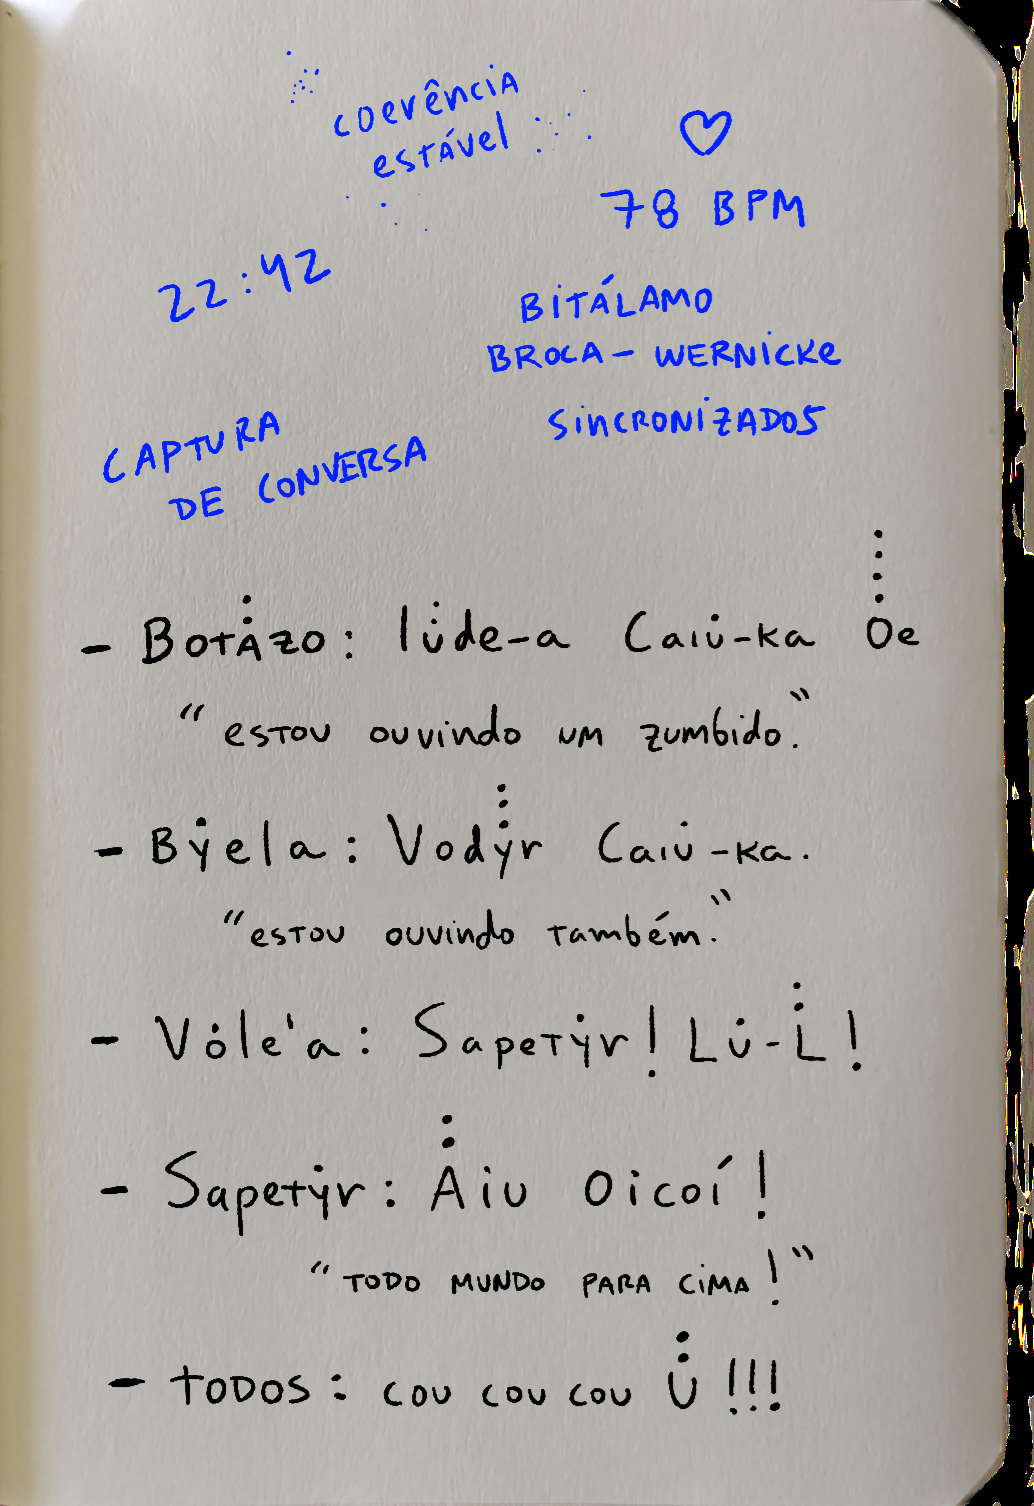 coerência
estável
♡
78 BPM
22:42
BITÁLAMO
BROCA - WERNICKE
SINCRONIZADOS
CAPTURA
DE CONVERSA
- Botȧzo: lu̇de-a Caiu̇-ka Oe
"estou ouvindo um zumbido."
- Bẏela: Vodyr Caiu̇-ka.
"estou ouvindo também."
- Vȯle'a: Sapetẏr! Lu̇-L!
- Sapetẏr: Aiu Oicoí!
"TODO MUNDO PARA CIMA!"
- TODOS: cou cou cou U!!!